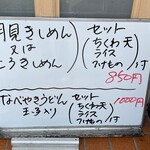 月見きしめん
又は
ころきしめん
セット
ちくわ天
ライス
つけもの 付
850円
なべやきうどん
玉子入り
セット
ちくわ天
ライス
つけもの 付
1000円